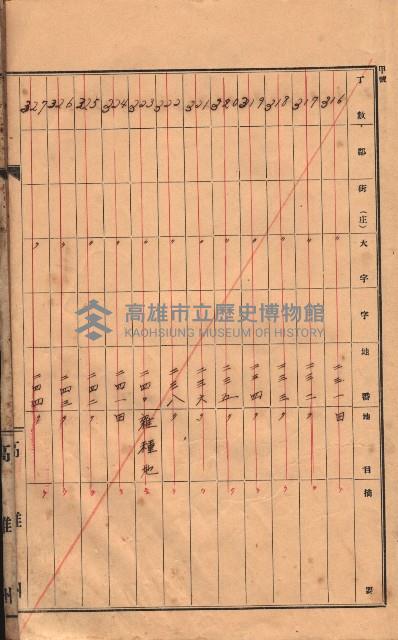 甲號
丁數 郡 街(庄) 大字 字 地番 地目 摘要
316 〃 二三一 田
317 〃 二三二 〃
318 〃 二三三 〃
319 〃 二三四 〃
320 〃 二三五 〃
321 〃 二三六 〃
322 〃 二三八 〃
323 〃 二四〇 雜種地
324 〃 二四一 田
325 〃 二四二 〃
326 〃 二四三 〃
327 〃 二四四 〃
高雄州
高雄市立歷史博物館
KAOHSIUNG MUSEUM OF HISTORY